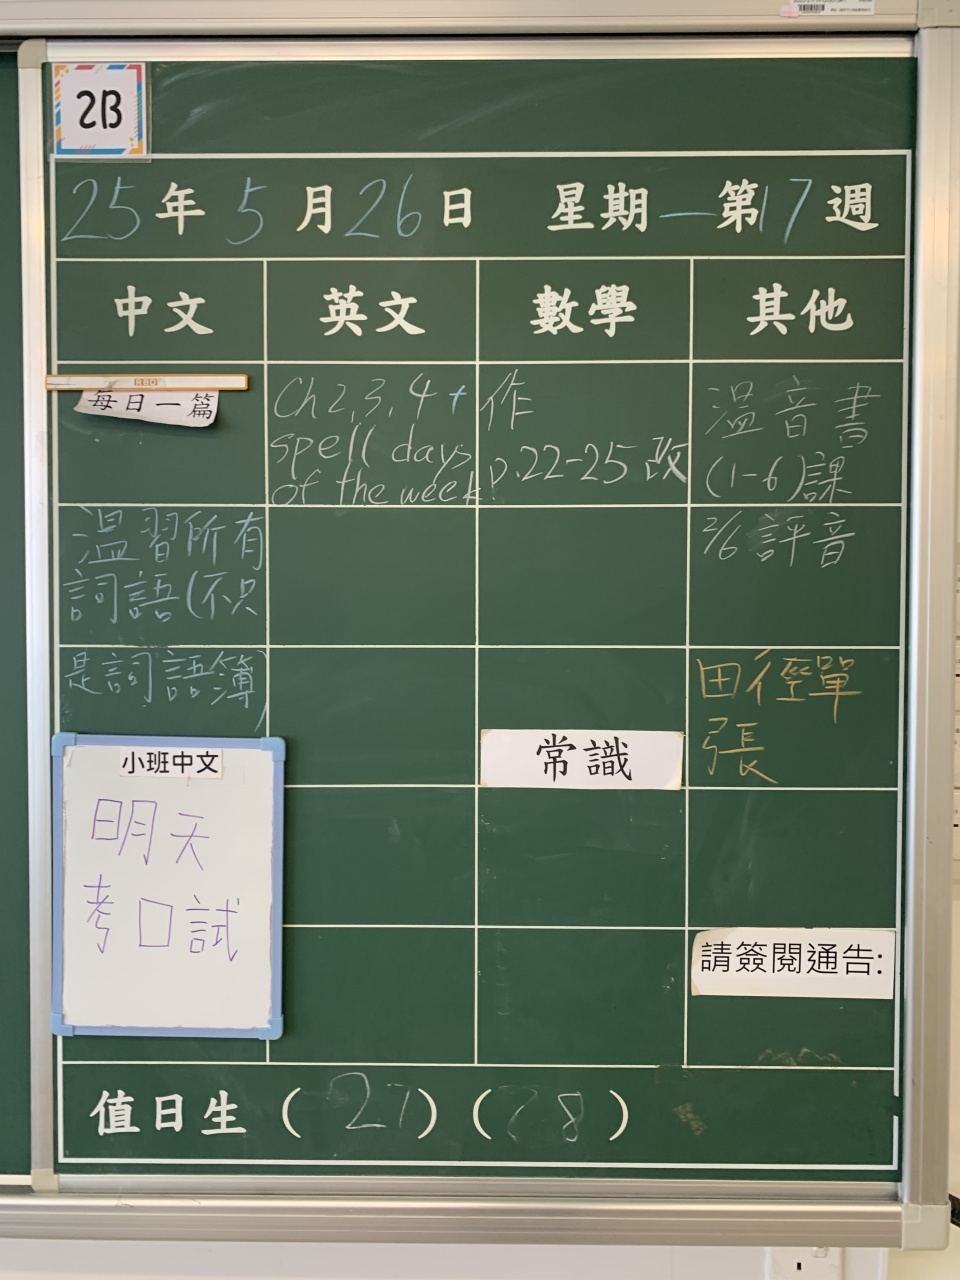 2B
25年5月26日 星期一 第17週
中文 英文 數學 其他
每日一篇
溫習所有
詞語(不只
是詞語簿)
小班中文
明天
考口試
Ch 2, 3, 4 +
spell days
of the week
作
p.22-25 改
常識
溫音書
(1-6)課
2/6 評音
田徑單
張
請簽閱通告:
值日生 (27) (28)